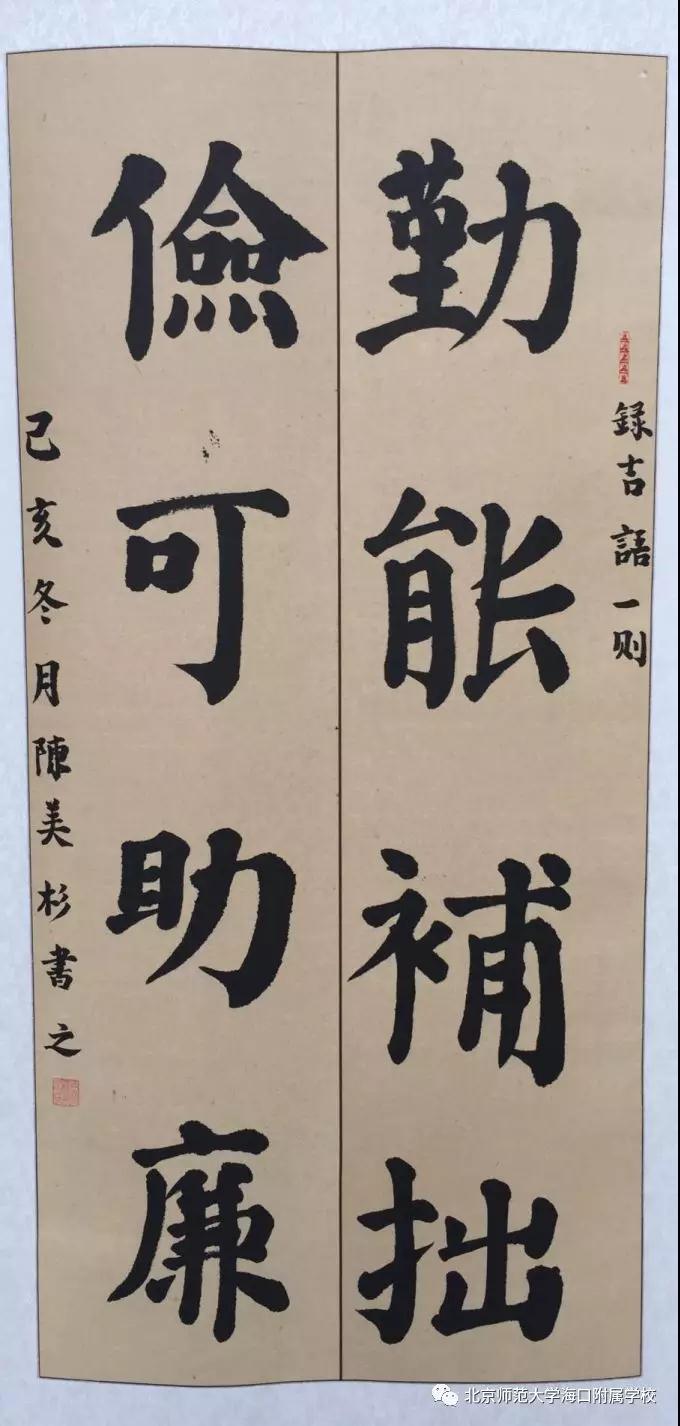 録吉語一则
勤能補拙
儉可助廉
己亥冬月陳美杉書之
北京师范大学海口附属学校